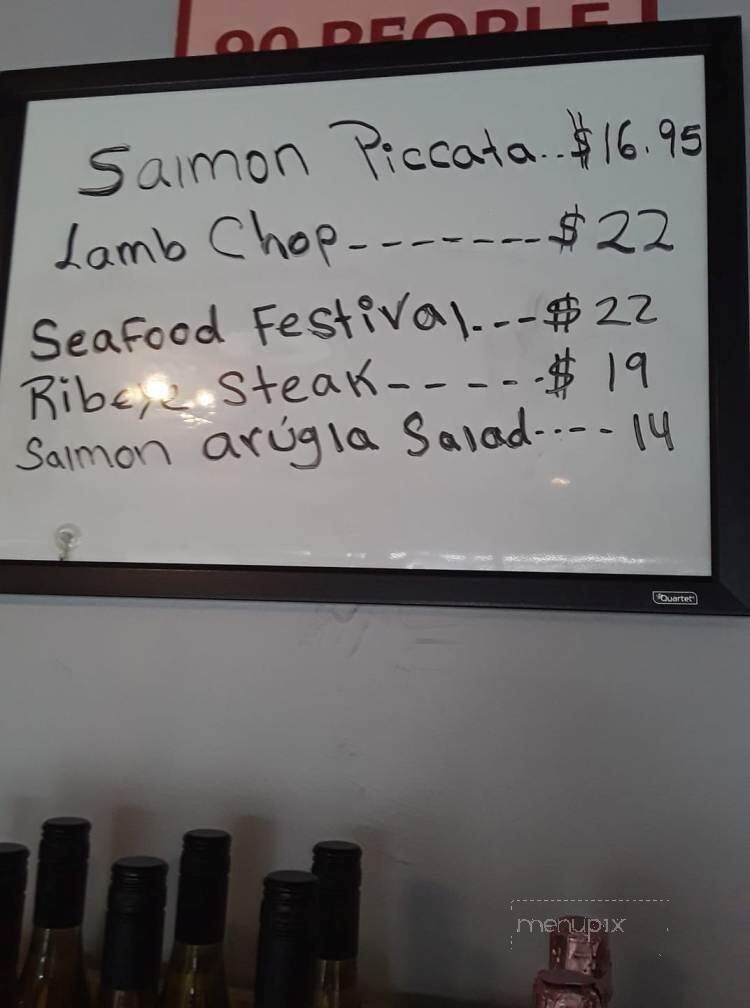 90 PEOPLE
Salmon Piccata..$16.95
Lamb Chop--------$22
Seafood Festival.---$22
Ribeye Steak------$19
Salmon arúgla Salad----14
Quartet
menupix